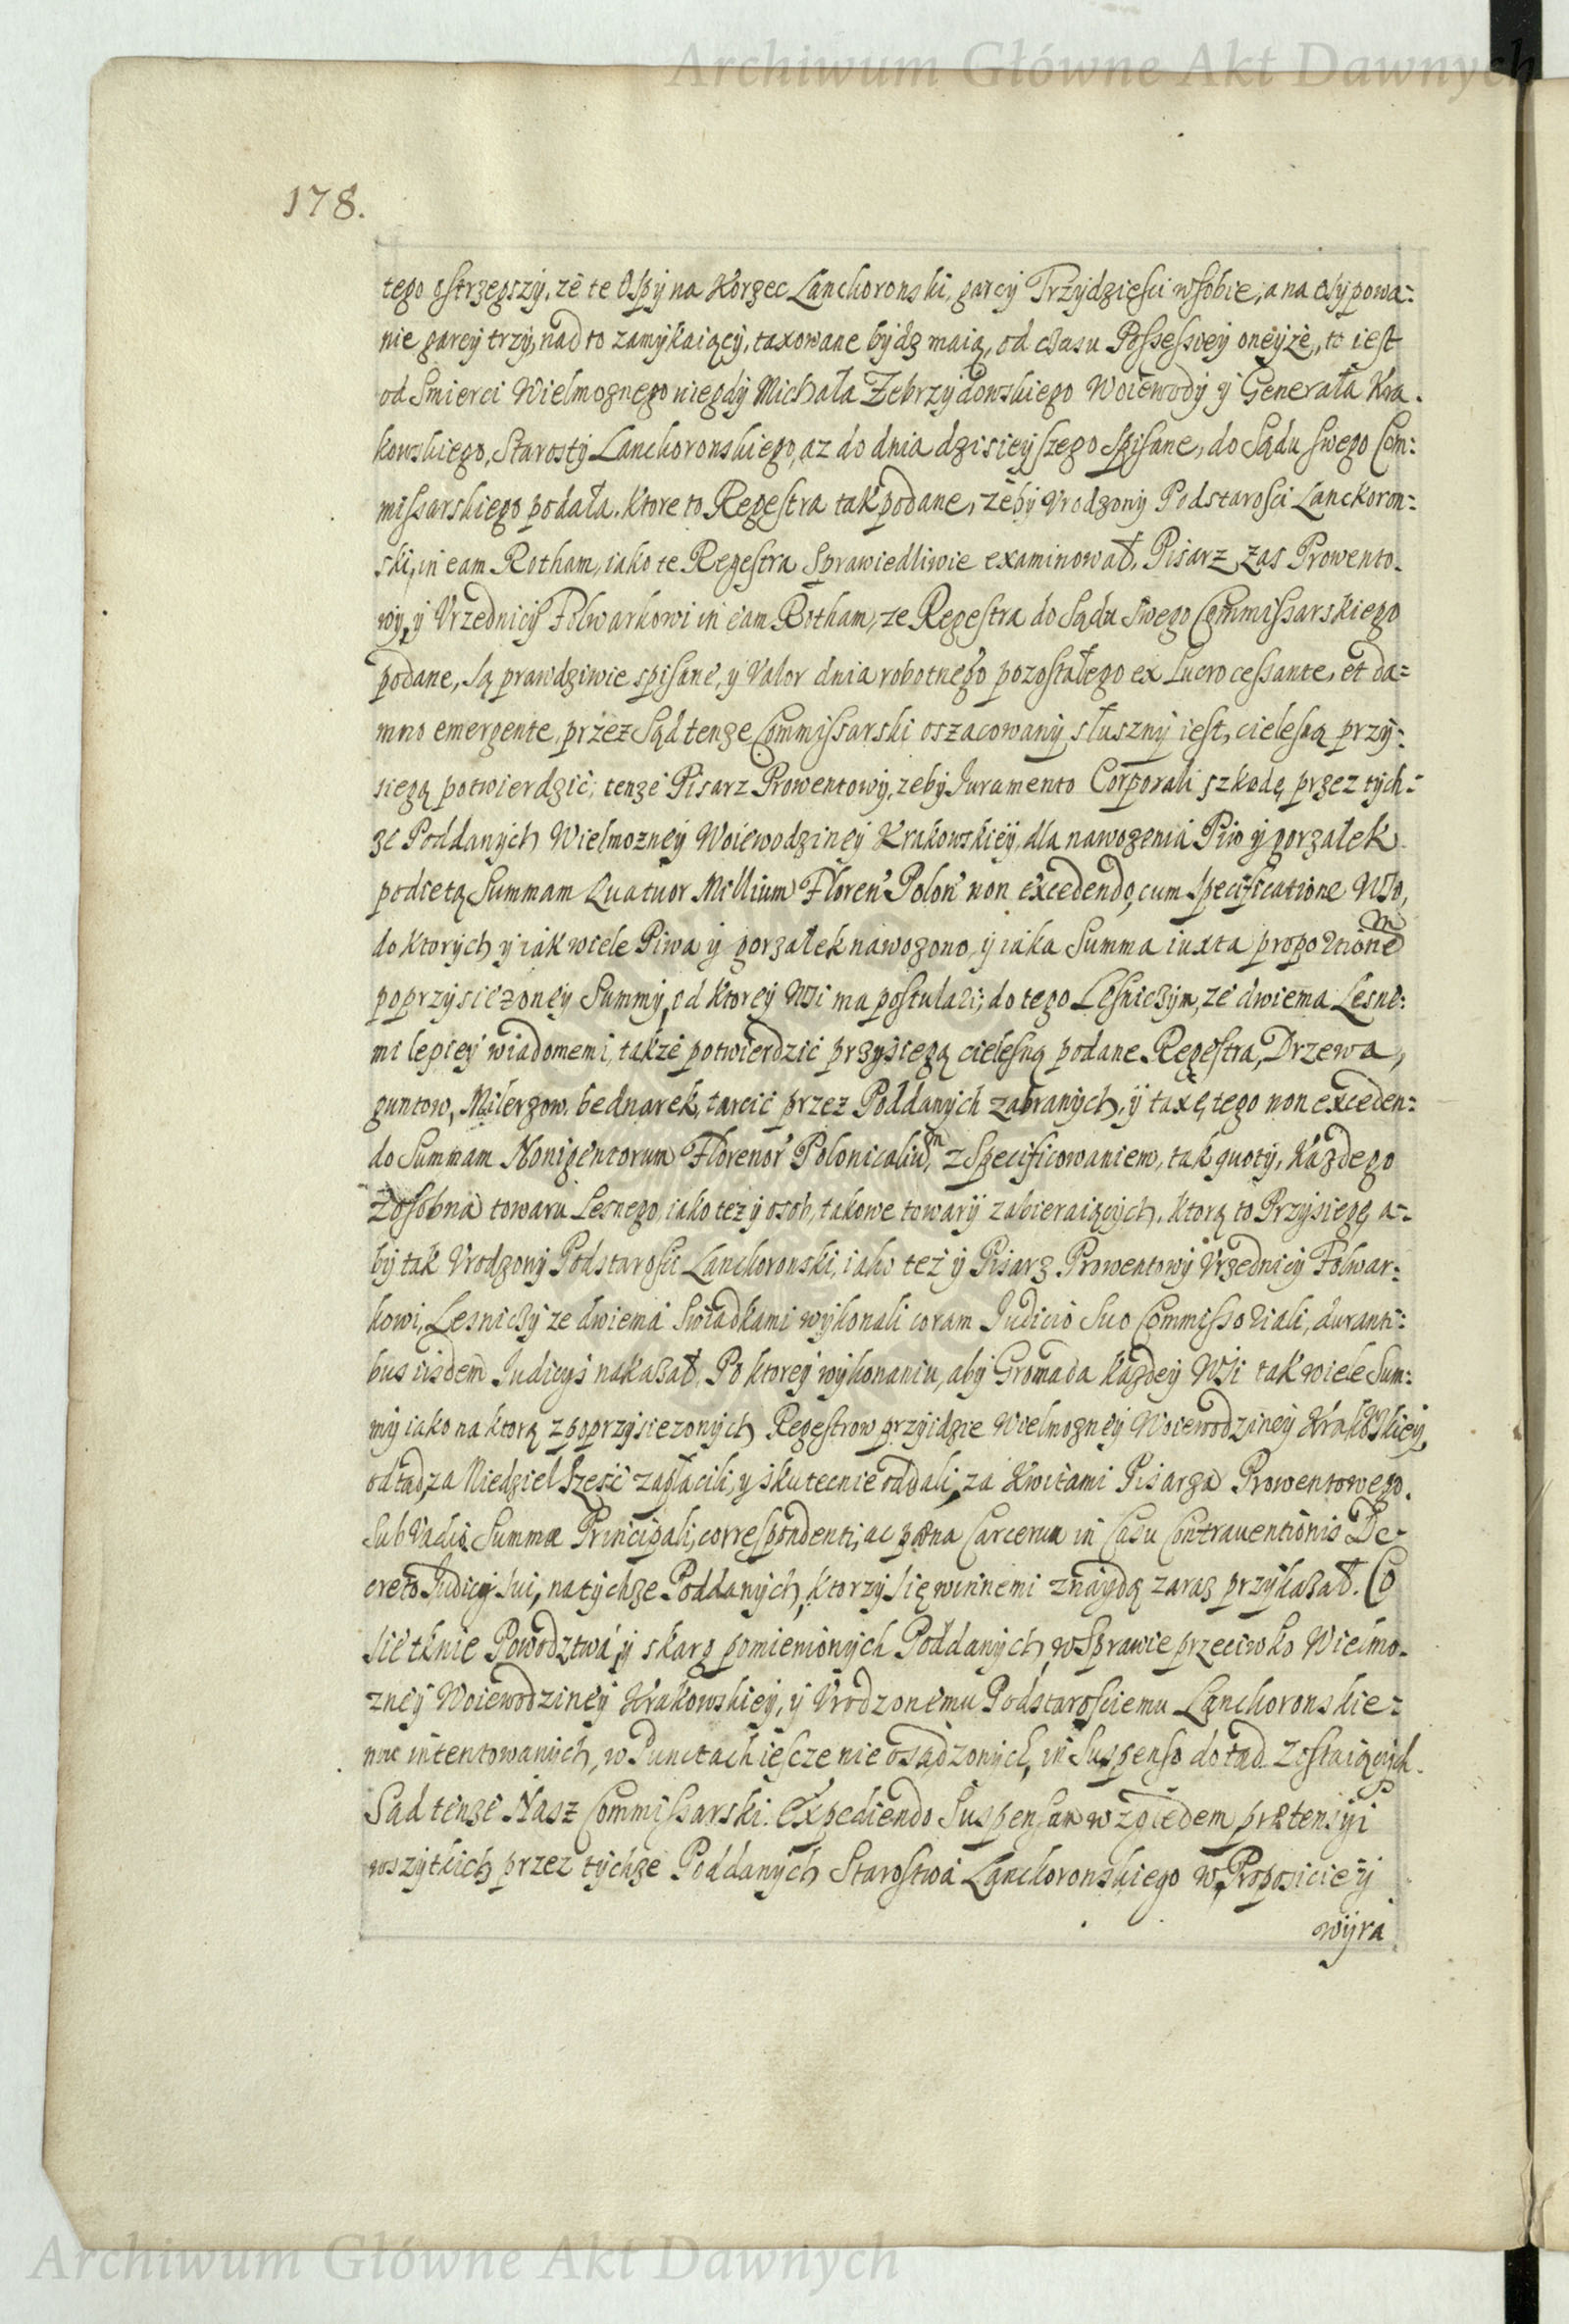 Archiwum Główne Akt Dawnych
178.
tego ostrzegszy, ze te Ospy na Korzec Lanckoronski, garcy Trzydziesci w sobie, a na osypowa=
nie garcy trzy, nad to zamykaiący, taxowane bydz maią, od czasu Possessiey oneyże, to iest
od Smierci Wielmoznego niegdy Michała Zebrzydowskiego Woiewody y Generała Kra=
kowskiego, Starosty Lanckoronskiego, az do dnia dzisieyszego Spisane, do Sądu swego Com=
missarskiego podała. Ktore to Regestra tak podane, zeby Vrodzony Podstarosci Lanckoron=
ski, in eam Rotham, iako te Regestra Sprawiedliwie examinował, Pisarz zas Prowento=
wy, y Vrzednicy Folwarkowi in eam Rotham, ze Regestra do Sądu Swego Commissarskiego
podane, są prawdziwie spisane, y Valor dnia robotnego pozostałego ex Lucro cessante, et da=
mno emergente, przez Sąd tenze Commissarski oszacowany słuszny iest, cielesną przy=
siegą potwierdzic; tenze Pisarz Prowentowy, zeby Iuramento Corporali szkodę przez tych=
ze Poddanych Wielmozney Woiewodziney Krakowskiey, dla nawozenia Piw y gorzałek
podietą Summam Quatuor Millium Floren Polon non excedendo, cum specificatione Wsi,
do ktorych y iak wiele Piwa y gorzałek nawozono, y iaka Summa iuxta proportionem
poprzysiezoney Summy, od ktorey Wsi ma postulari; do tego Lesniczym, ze dwiema Lesne=
mi lepiey wiadomemi, takze potwierdzic przysiegą cielesną podane Regestra, Drzewa,
guntow, bednarek, tarcic przez Poddanych zabranych, y taxę tego non exceden=
do Summam Nongentorum Florenor Polonicalium, z Specificowaniem, tak quoty, Kazdego
zosobna towaru Lesnego, iako tez y osob, takowe towary zabieraiących, ktorą to Przysiegę a=
by tak Vrodzony Podstarosci Lanckoronski, iako tez y Pisarz Prowentowy Vrzednicy Folwar=
kowi, Lesniczy ze dwiema Swiadkami wykonali coram Judicio Suo Commissoriali, duranti=
bus iisdem Judicys nakazał. Po ktorey wykonaniu, aby Gromada kazdey Wsi tak wiele Sum=
my iako na ktorą z poprzysiezonych Regestrow przyidzie Wielmozney Woiewodziney Krakowskiey,
odtąd za Niedziel Szesc zapłacili, y skutecnie oddali, za Kwitami Pisarza Prowentowego.
Sub Vadio Summæ Principali, correspondenti, ac pæna Carcerum in Casu Contrauentionis De=
creto Judicij sui, na tychze Poddanych, ktorzy się winnemi znaydą zaraz przykazał. Co
sie tknie Powodztwa, y skarg pomienionych Poddanych, w Sprawie przeciwko Wielmo=
zney Woiewodziney Krakowskiey, y Vrodzonemu Podstarosciemu Lanckoronskie=
mu intentowanych, w Punctach iescze nie osądzonych, in Suspenso dotąd zostaiących.
Sąd tenze Nasz Commissarski. Expediendo Suspensam względem prætensyi
wszytkich przez tychze Poddanych Starostwa Lanckoronskiego w Proposiciey
wyra
Archiwum Główne Akt Dawnych